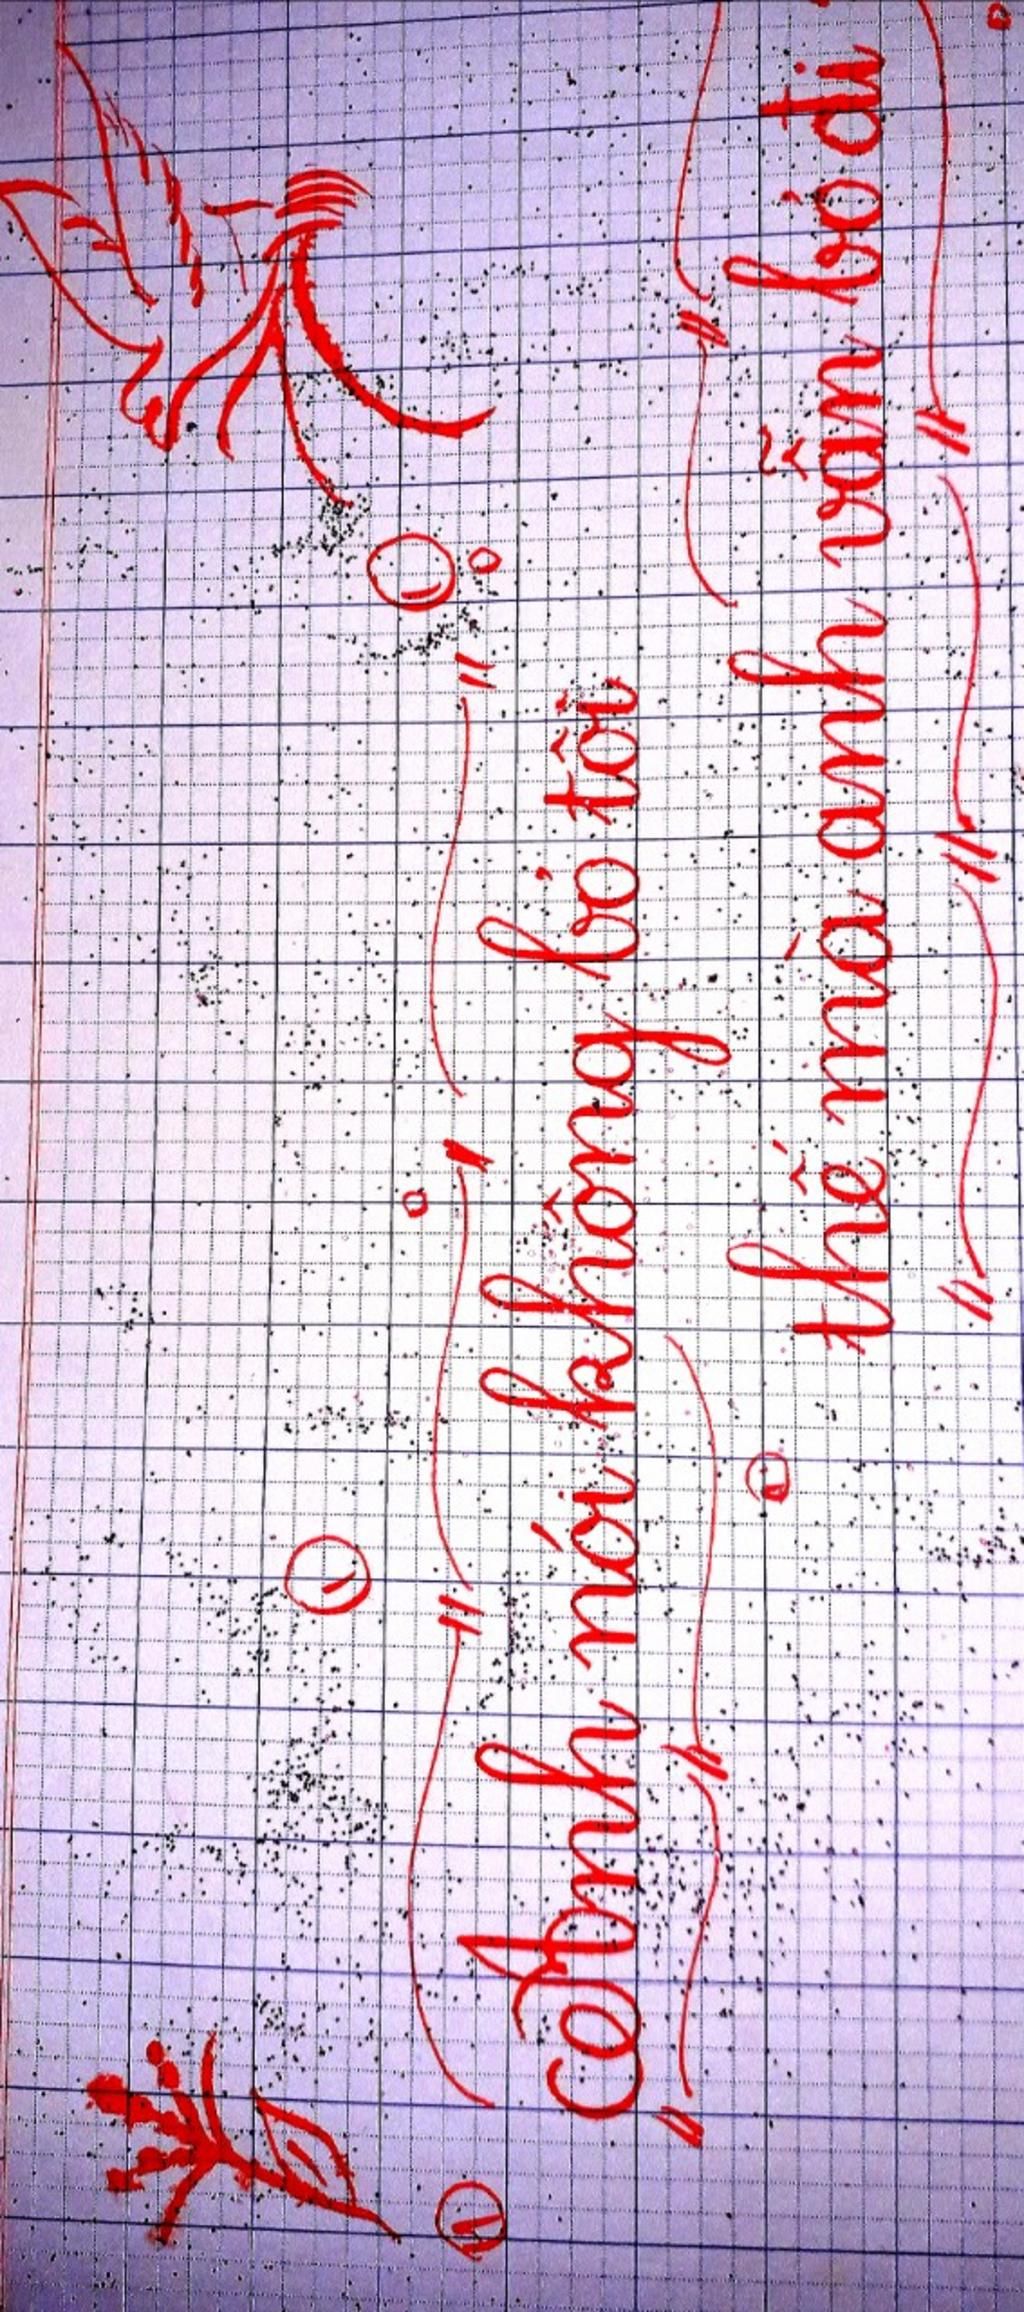 Anh nói không bỏ tôi
thế mà anh vẫn bỏ đi